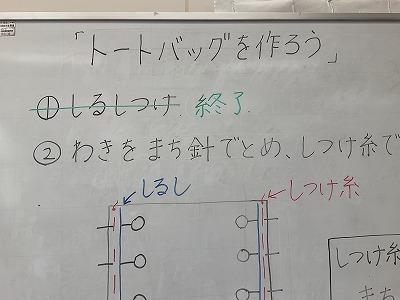 「トートバッグを作ろう」
①しるしつけ 終了.
②わきをまち針でとめ、しつけ糸で
しるし しつけ糸
しつけ糸
まち